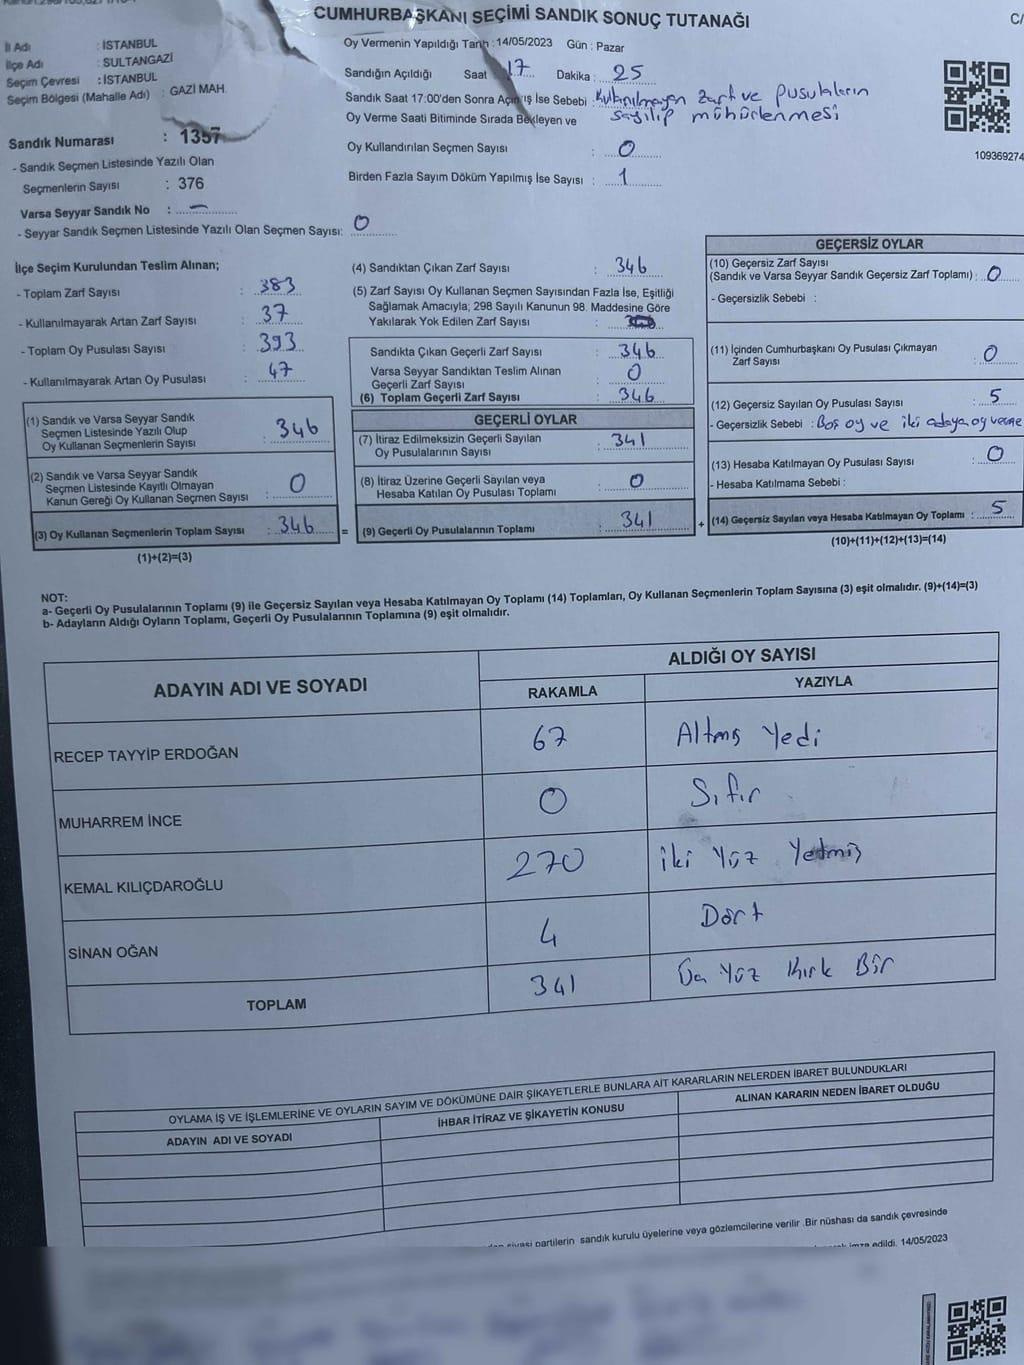 CUMHURBAŞKANI SEÇİMİ SANDIK SONUÇ TUTANAĞI
C/
İl Adı : İSTANBUL
İlçe Adı : SULTANGAZİ
Seçim Çevresi : İSTANBUL
Seçim Bölgesi (Mahalle Adı) : GAZİ MAH.
Sandık Numarası : 1357
- Sandık Seçmen Listesinde Yazılı Olan
Seçmenlerin Sayısı : 376
Varsa Seyyar Sandık No : –
- Seyyar Sandık Seçmen Listesinde Yazılı Olan Seçmen Sayısı: 0
Oy Vermenin Yapıldığı Tarih :14/05/2023 Gün : Pazar
Sandığın Açıldığı Saat 17 Dakika : 25
Sandık Saat 17:00'den Sonra Açılmış İse Sebebi : Kullanılmayan zarf ve pusulaların
sayılıp mühürlenmesi
Oy Verme Saati Bitiminde Sırada Bekleyen ve
Oy Kullandırılan Seçmen Sayısı : 0
Birden Fazla Sayım Döküm Yapılmış İse Sayısı : 1
109369274
İlçe Seçim Kurulundan Teslim Alınan;
- Toplam Zarf Sayısı : 383
- Kullanılmayarak Artan Zarf Sayısı : 37
- Toplam Oy Pusulası Sayısı : 393
- Kullanılmayarak Artan Oy Pusulası : 47
(1) Sandık ve Varsa Seyyar Sandık
Seçmen Listesinde Yazılı Olup
Oy Kullanan Seçmenlerin Sayısı : 346
(2) Sandık ve Varsa Seyyar Sandık
Seçmen Listesinde Kayıtlı Olmayan
Kanun Gereği Oy Kullanan Seçmen Sayısı : 0
(3) Oy Kullanan Seçmenlerin Toplam Sayısı : 346
(1)+(2)=(3)
=
(4) Sandıktan Çıkan Zarf Sayısı : 346
(5) Zarf Sayısı Oy Kullanan Seçmen Sayısından Fazla İse, Eşitliği
Sağlamak Amacıyla; 298 Sayılı Kanunun 98. Maddesine Göre
Yakılarak Yok Edilen Zarf Sayısı :
Sandıkta Çıkan Geçerli Zarf Sayısı : 346
Varsa Seyyar Sandıktan Teslim Alınan
Geçerli Zarf Sayısı : 0
(6) Toplam Geçerli Zarf Sayısı : 346
GEÇERLİ OYLAR
(7) İtiraz Edilmeksizin Geçerli Sayılan
Oy Pusulalarının Sayısı : 341
(8) İtiraz Üzerine Geçerli Sayılan veya
Hesaba Katılan Oy Pusulası Toplamı : 0
(9) Geçerli Oy Pusulalarının Toplamı : 341
+
GEÇERSİZ OYLAR
(10) Geçersiz Zarf Sayısı
(Sandık ve Varsa Seyyar Sandık Geçersiz Zarf Toplamı) : 0
- Geçersizlik Sebebi :
(11) İçinden Cumhurbaşkanı Oy Pusulası Çıkmayan
Zarf Sayısı : 0
(12) Geçersiz Sayılan Oy Pusulası Sayısı : 5
- Geçersizlik Sebebi : Boş oy ve iki adaya oy verme
(13) Hesaba Katılmayan Oy Pusulası Sayısı : 0
- Hesaba Katılmama Sebebi :
(14) Geçersiz Sayılan veya Hesaba Katılmayan Oy Toplamı : 5
(10)+(11)+(12)+(13)=(14)
NOT:
a- Geçerli Oy Pusulalarının Toplamı (9) ile Geçersiz Sayılan veya Hesaba Katılmayan Oy Toplamı (14) Toplamları, Oy Kullanan Seçmenlerin Toplam Sayısına (3) eşit olmalıdır. (9)+(14)=(3)
b- Adayların Aldığı Oyların Toplamı, Geçerli Oy Pusulalarının Toplamına (9) eşit olmalıdır.
ADAYIN ADI VE SOYADI
ALDIĞI OY SAYISI
RAKAMLA YAZIYLA
RECEP TAYYİP ERDOĞAN 67 Altmış Yedi
MUHARREM İNCE 0 Sıfır
KEMAL KILIÇDAROĞLU 270 İki Yüz Yetmiş
SİNAN OĞAN 4 Dört
TOPLAM 341 Üç Yüz Kırk Bir
OYLAMA İŞ VE İŞLEMLERİNE VE OYLARIN SAYIM VE DÖKÜMÜNE DAİR ŞİKAYETLERLE BUNLARA AİT KARARLARIN NELERDEN İBARET BULUNDUKLARI
ADAYIN ADI VE SOYADI İHBAR İTİRAZ VE ŞİKAYETİN KONUSU ALINAN KARARIN NEDEN İBARET OLDUĞU
siyasi partilerin sandık kurulu üyelerine veya gözlemcilerine verilir. Bir nüshası da sandık çevresinde
imza edildi. 14/05/2023